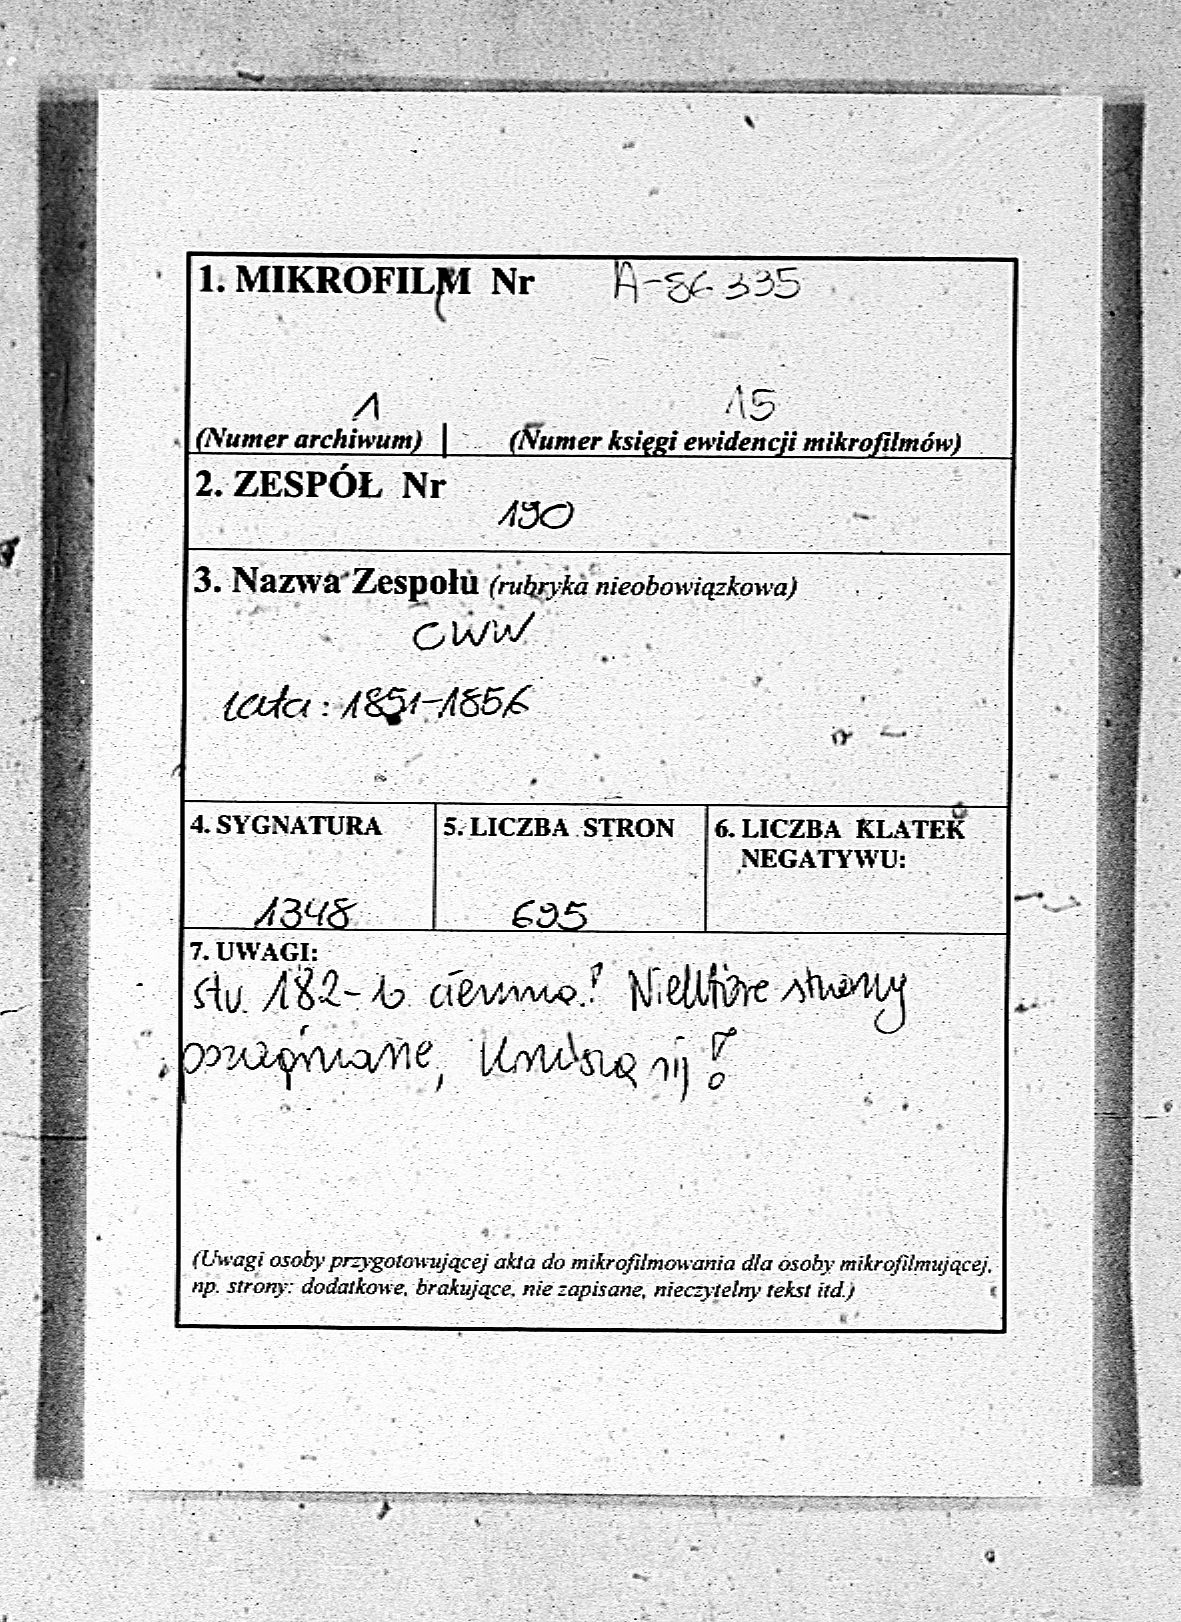 1. MIKROFILM Nr A-86335
1 15
(Numer archiwum) (Numer księgi ewidencji mikrofilmów)
2. ZESPÓŁ Nr
190
3. Nazwa Zespołu (rubryka nieobowiązkowa)
CWW
lata: 1851-1856
4. SYGNATURA 5. LICZBA STRON 6. LICZBA KLATEK
NEGATYWU:
1348 695
7. UWAGI:
str. 182 - b. ciemna! Niektóre strony
, kruszą się!
(Uwagi osoby przygotowującej akta do mikrofilmowania dla osoby mikrofilmującej,
np. strony: dodatkowe, brakujące, nie zapisane, nieczytelny tekst itd.)